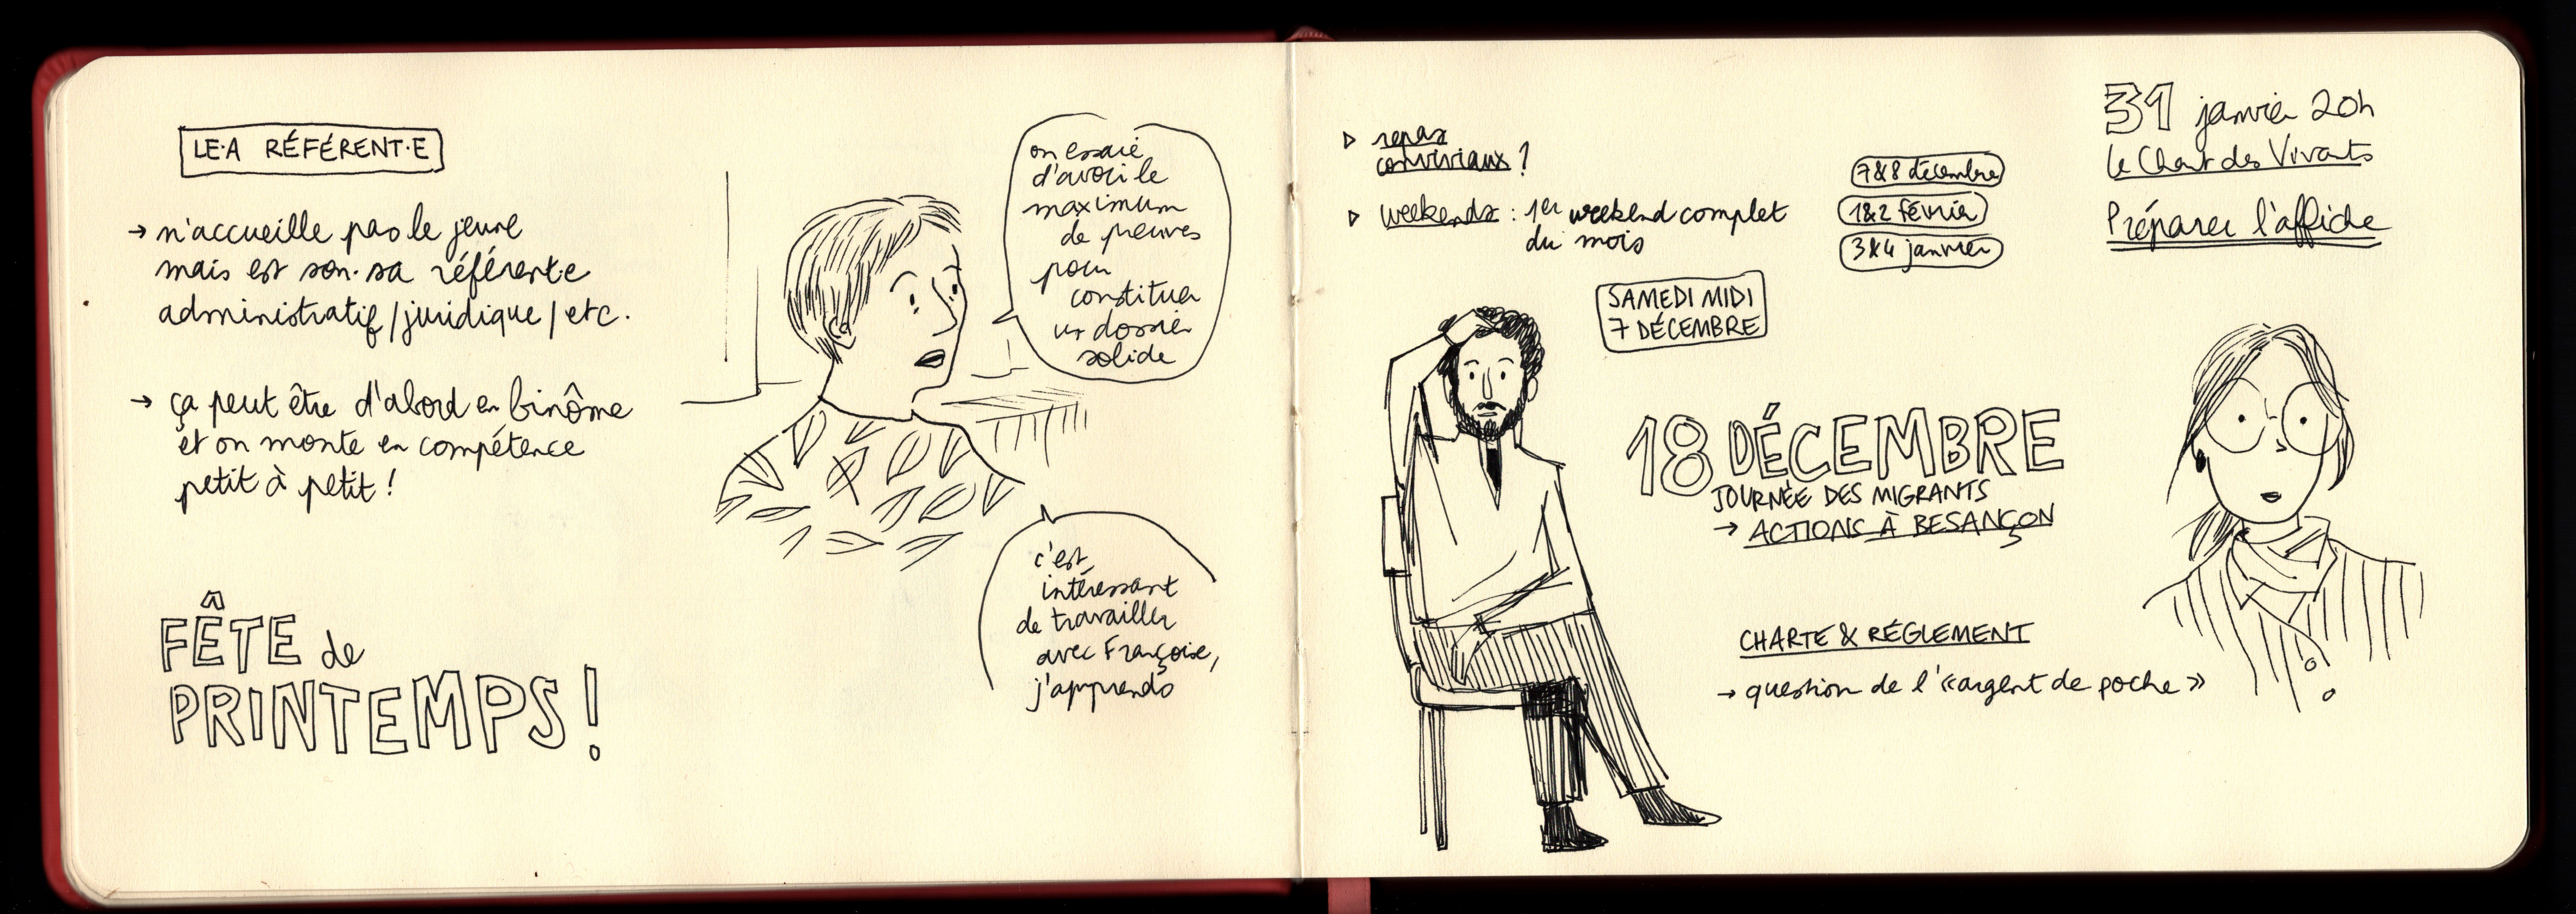 LE·A RÉFÉRENT·E
→ n'accueille pas le jeune
mais est son·sa référent·e
administratif/juridique/etc.
→ ça peut être d'abord en binôme
et on monte en compétence
petit à petit !
FÊTE de
PRINTEMPS !
on essaie
d'avoir le
maximum
de preuves
pour
constituer
un dossier
solide
c'est
intéressant
de travailler
avec Françoise,
j'apprends
▷ repas
conviviaux ?
▷ weekends : 1er weekend complet
du mois
7&8 décembre
1&2 février
3&4 janvier
31 janvier 20h
le Chant des Vivants
Préparer l'affiche
SAMEDI MIDI
7 DÉCEMBRE
18 DÉCEMBRE
JOURNÉE DES MIGRANTS
→ ACTIONS À BESANÇON
CHARTE & RÉGLEMENT
→ question de l'«argent de poche»